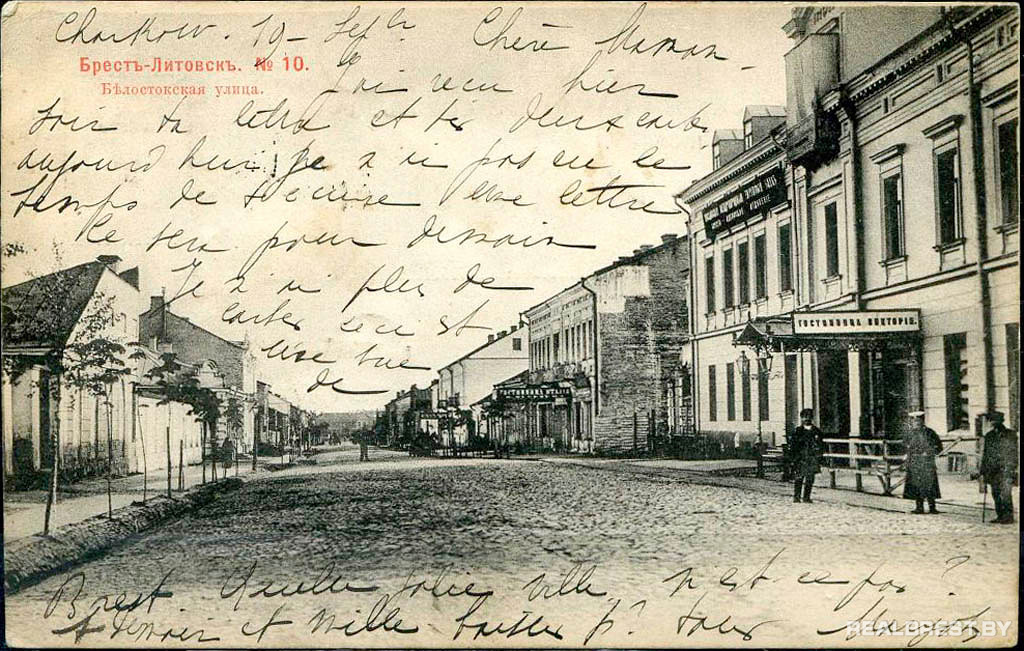 Charkow. 19 - Sept. Chère Maman -
Брестъ-Литовскъ. № 10.
Бѣлостокская улица.
J'ai reçu hier
soir ta lettre et tes deux cartes
aujourd'hui je n'ai pas eu le
temps de t'écrire une lettre
ce sera pour demain
Je n'ai plus de
cartes ceci est
une vue
de
ГОСТИННИЦА ВИКТОРІЯ
Brest. Quelle jolie ville n'est ce pas?
A demain et mille baisers p. tous
REALBREST.BY